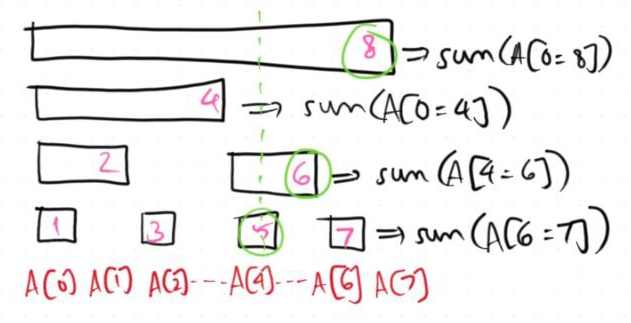 8 ⇒ sum(A[0=8])
4 ⇒ sum(A[0=4])
2 6 ⇒ sum(A[4=6])
1 3 5 7 ⇒ sum(A[6=7])
A[0] A[1] A[2]---A[4]---A[6] A[7]